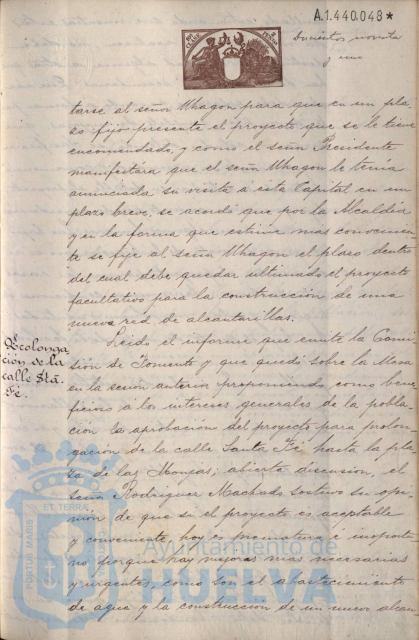 A.1.440.048*
Doscientos noventa
y uno
tarse al señor Uhagon para que en un pla
zo fijo presente el proyecto que se le tiene
encomendado, y como el señor Presidente
manifestára que el señor Uhagon le tenía
anunciada su visita á esta Capital en un
plazo breve, se acordó que por la Alcaldía
y en la forma que estime mas convenien
te se fije al señor Uhagon el plazo dentro
del cual debe quedar ultimado el proyecto
facultativo para la construccion de una
nueva red de alcantarillas.
Prolonga
ción de la
calle Sta.
Fé
Leido el informe que emite la Comi
sión de Fomento y que quedó sobre la Mesa
en la sesión anterior proponiendo, como bene
ficioso á los intereses generales de la pobla
ción la aprobacion del proyecto para prolon
gacion de la calle Santa Fé hasta la pla
za de las Monjas; abierta discusion, el
señor Rodriguez Machado sostuvo su opi
nión de que si el proyecto es aceptable
y conveniente, hoy es prematuro é inoportu
no porque hay mejoras mas necesarias
y urgentes, como son el abastecimiento
de agua y la construccion de un nuevo alcan
PORTUS MARIS
ET TERRAE
Ayuntamiento de
HUELVA